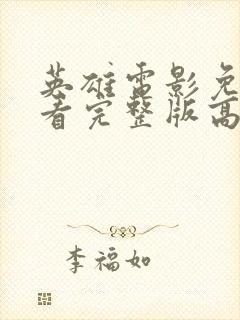 英雄电影免
看完整版高
李福如